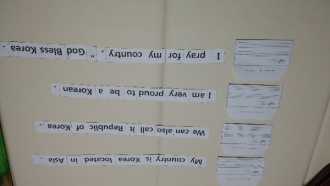 My country is Korea located in Asia .
We can also call it Republic of Korea .
I am very proud to be a Korean .
I pray for my country , " God Bless Korea .